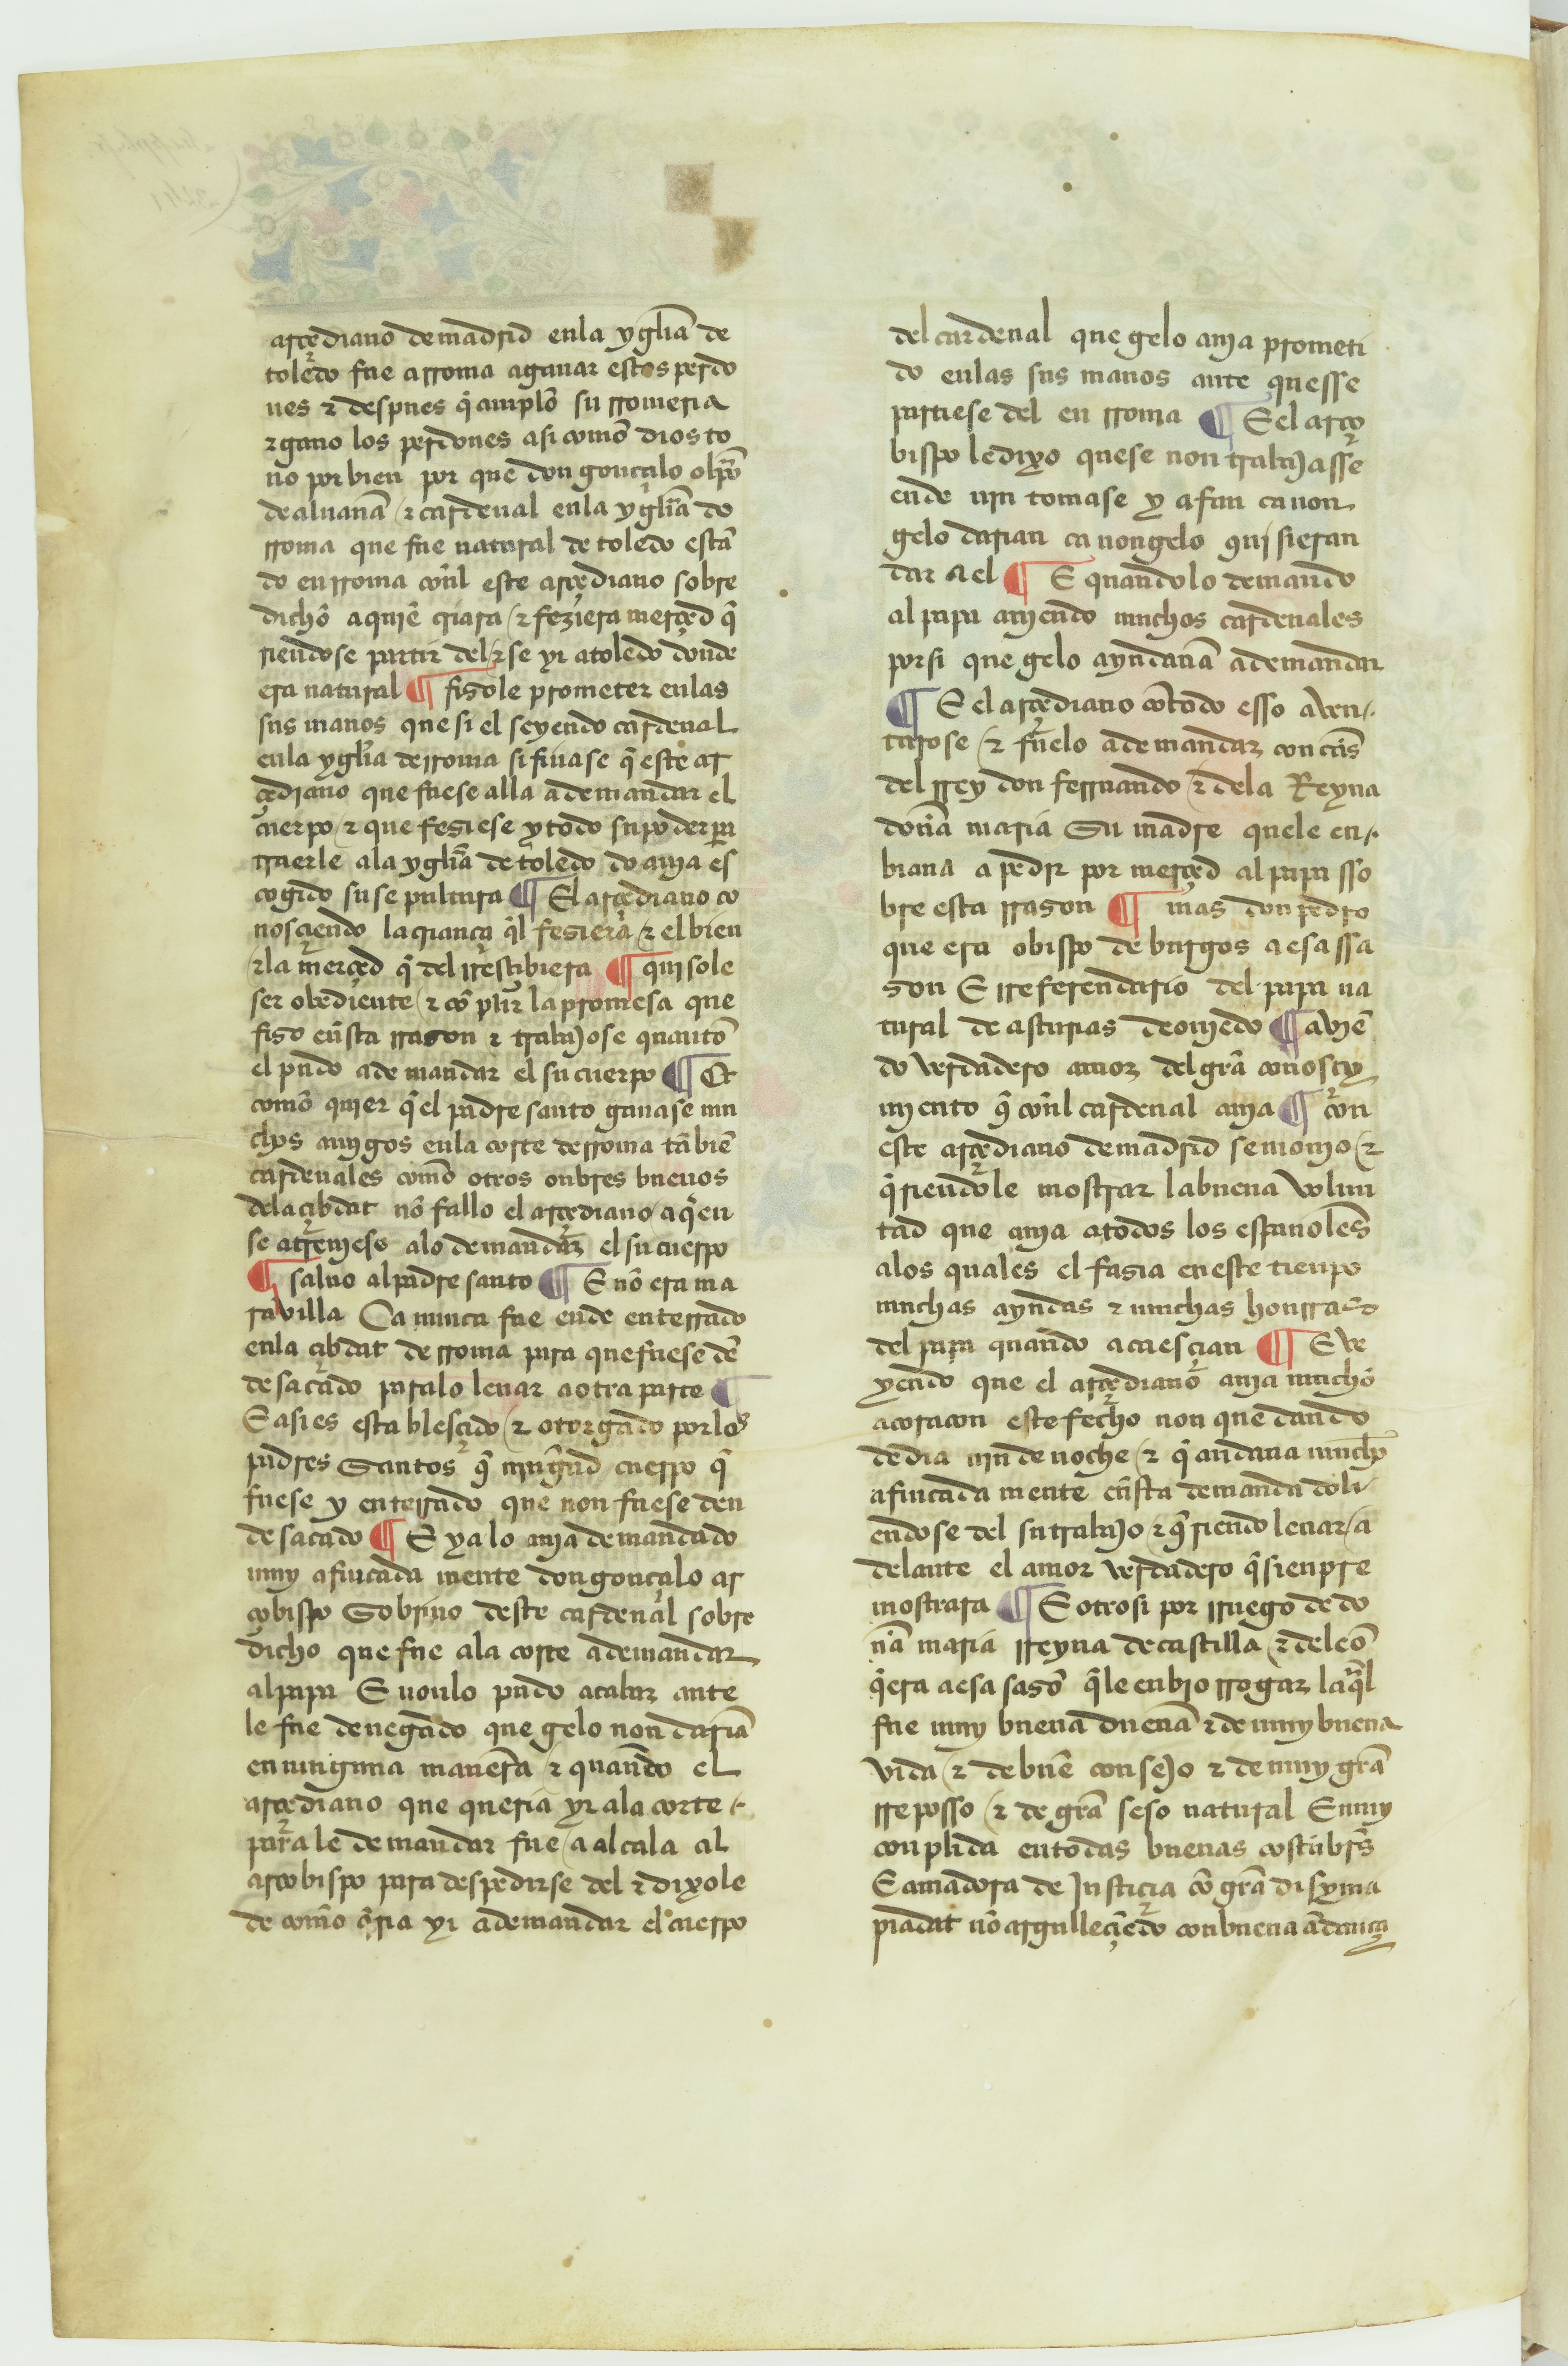 arçediano de madrid en la yglia de
toledo fue a rroma a ganar estos perdo
nes & despues q̃ cunplio su rromeria
& gano los perdones asi como dios to
uo por bien por que don gonçalo obpo
de aluana & cardenal en la yglia de
rroma que fue natural de toledo estã
do en rroma conl este arçediano sobre
dicho a quiẽ criara & feziera merçed q̃
riendose partir del & se yr a toledo donde
era natural ¶ fisole prometer en las
sus manos que si el seyendo cardenal
en la yglia de rroma si finase q̃ este ar
çediano que fuese alla a demandar el
cuerpo & que fesiese y todo su poder pa
traerle a la yglia de toledo do auia es
cogido su sepultura ¶ El arçediano co
nosçiendo la criança q̃l fesiera & el bien
& la merçed q̃ del rresçibiera ¶ quisole
ser obediente & cõplir la promesa que
fiso en̄sta rrason & trabajose quanto
el pudo a demandar el su cuerpo ¶ Et
como quier q̃ el padre santo ganase mu
chos amygos en la corte de rroma tã biẽ
cardenales como otros onbres buenos
de la çibdat nõ fallo el arçediano a q̃en
se atreuiese a lo demandar el su cuerpo
¶ saluo al padre santo ¶ E nõ era ma
rauilla Ca nunca fue ende enterrado
en la çibdat de rroma para que fuese dẽ
de sacado para lo leuar a otra parte ¶
E asi es establesçido & otorgado por los
padres Santos q̃ ningud cuerpo q̃
fuese y enterrado que non fuese den
de sacado ¶ E ya lo auia demandado
muy afincada mente don gonçalo ar
çobispo Sobrino deste cardenal sobre
dicho que fue a la corte a demandar
al papa E non lo pudo acabar ante
le fue denegado que gelo non daria
en ninguna manera & quando el
arçediano que queria yr a la corte
para le demandar fue a alcala al
arçobispo para despedirse del & dixole
de como q̃ria yr a demandar el cuerpo
del cardenal que gelo auia prometi
do en las sus manos ante quesse
partiese del en rroma ¶ E el arço
bispo le dixo que se non trabajasse
ende nin tomase y afan ca non
gelo darian ca non gelo quisieran
dar a el ¶ E quando lo demando
al papa auiendo muchos cardenales
por si que gelo ayudauã a demandar
¶ E el arçediano cõ todo esso auen
turose & fuelo a demandar con cãs
del rrey don ferrnando & de la Reyna
doña maria Su madre que le en
biaua a pedir por merçed al papa sso
bre esta rrason ¶ mas don pedro
que era obispo de burgos a esa ssa
son E rreferendario del papa na
tural de asturias de ouiedo ¶ auiẽ
do verdadero amor del grã conosçy
miento q̃ conl cardenal auia ¶ con
este arçediano de madrid se mouio &
q̃riendole mostrar la buena volun
tad que auia a todos los españoles
a los quales el fasia en este tienpo
muchas ayudas & muchas honrras
del papa quando acaesçian ¶ E ve
yendo que el arçediano auia mucho
a coraçon este fecho non quedando
de dia nin de noche & q̃ andaua mucho
afincada mente en̄sta demanda doli
endose del su trabajo & q̃riendo leuar a
delante el amor verdadero q̃ sienpre
mostrara ¶ E otrosi por rruego de do
ña maria rreyna de castilla & de leõ
q̃ era a esa sasõ q̃ le enbio rrogar la q̃l
fue muy buena dueña & de muy buena
vida & de buẽ consejo & de muy grã
rreposso & de grã seso natural E muy
conplida en todas buenas costũbrs
E amadora de Justiçia cõ grã disyma
piadat nõ argulleçiẽdo con buena ãdança